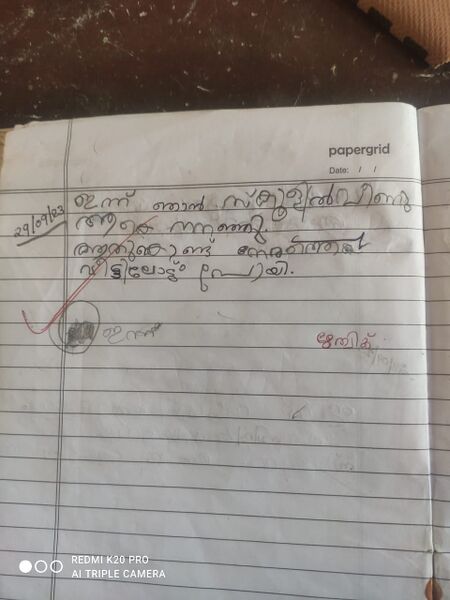 papergrid
Date: / /
29/09/23
ഇന്ന് ഞാൻ സ്കൂളിൽ വീണു
ആകെ നനഞ്ഞു.
അതുകൊണ്ട് നേരത്തെ
വീട്ടിലോട്ട് പോയി.
ഇന്ന്
REDMI K20 PRO
AI TRIPLE CAMERA